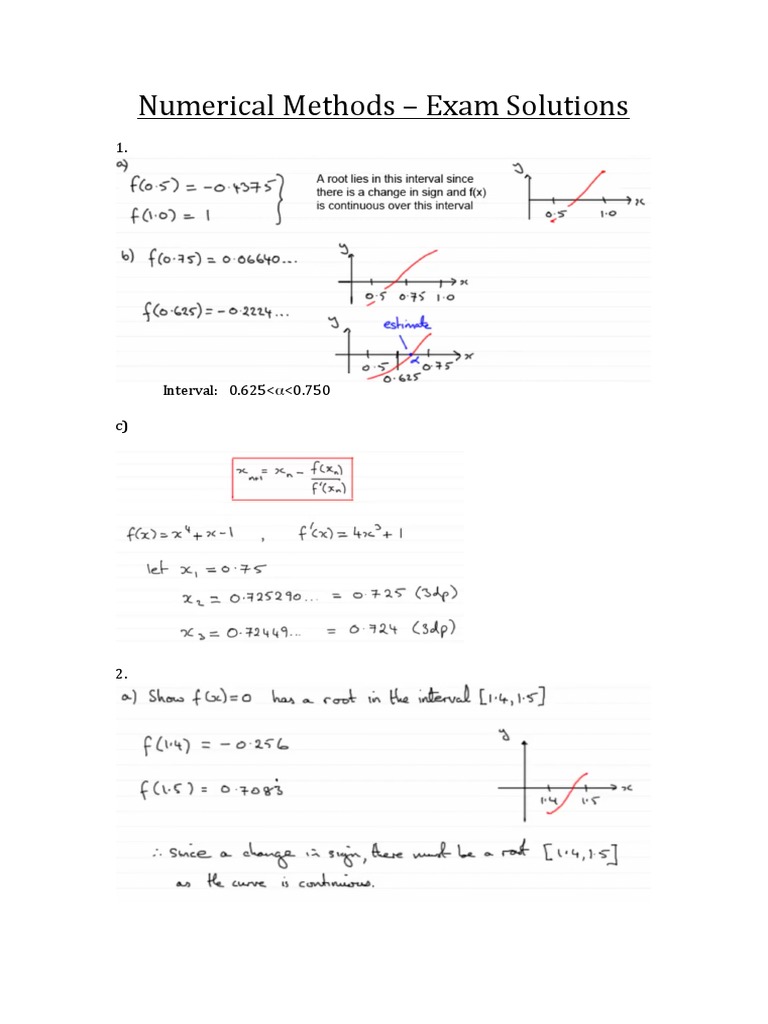 Numerical Methods – Exam Solutions
1.
a)
f(0.5) = -0.4375
f(1.0) = 1
A root lies in this interval since
there is a change in sign and f(x)
is continuous over this interval
y
x
0.5 1.0
b) f(0.75) = 0.06640...
y
x
0.5 0.75 1.0
f(0.625) = -0.2224...
y
estimate
α
x
0.5 0.75
0.625
Interval: 0.625<α<0.750
c)
xₙ₊₁ = xₙ - f(xₙ)/f'(xₙ)
f(x) = x⁴ + x - 1 , f'(x) = 4x³ + 1
let x₁ = 0.75
x₂ = 0.725290... = 0.725 (3dp)
x₃ = 0.72449... = 0.724 (3dp)
2.
a) Show f(x)=0 has a root in the interval [1.4, 1.5]
f(1.4) = -0.256
f(1.5) = 0.7083̇
y
x
1.4 1.5
∴ since a change in sign, there must be a root [1.4, 1.5]
as the curve is continuous.